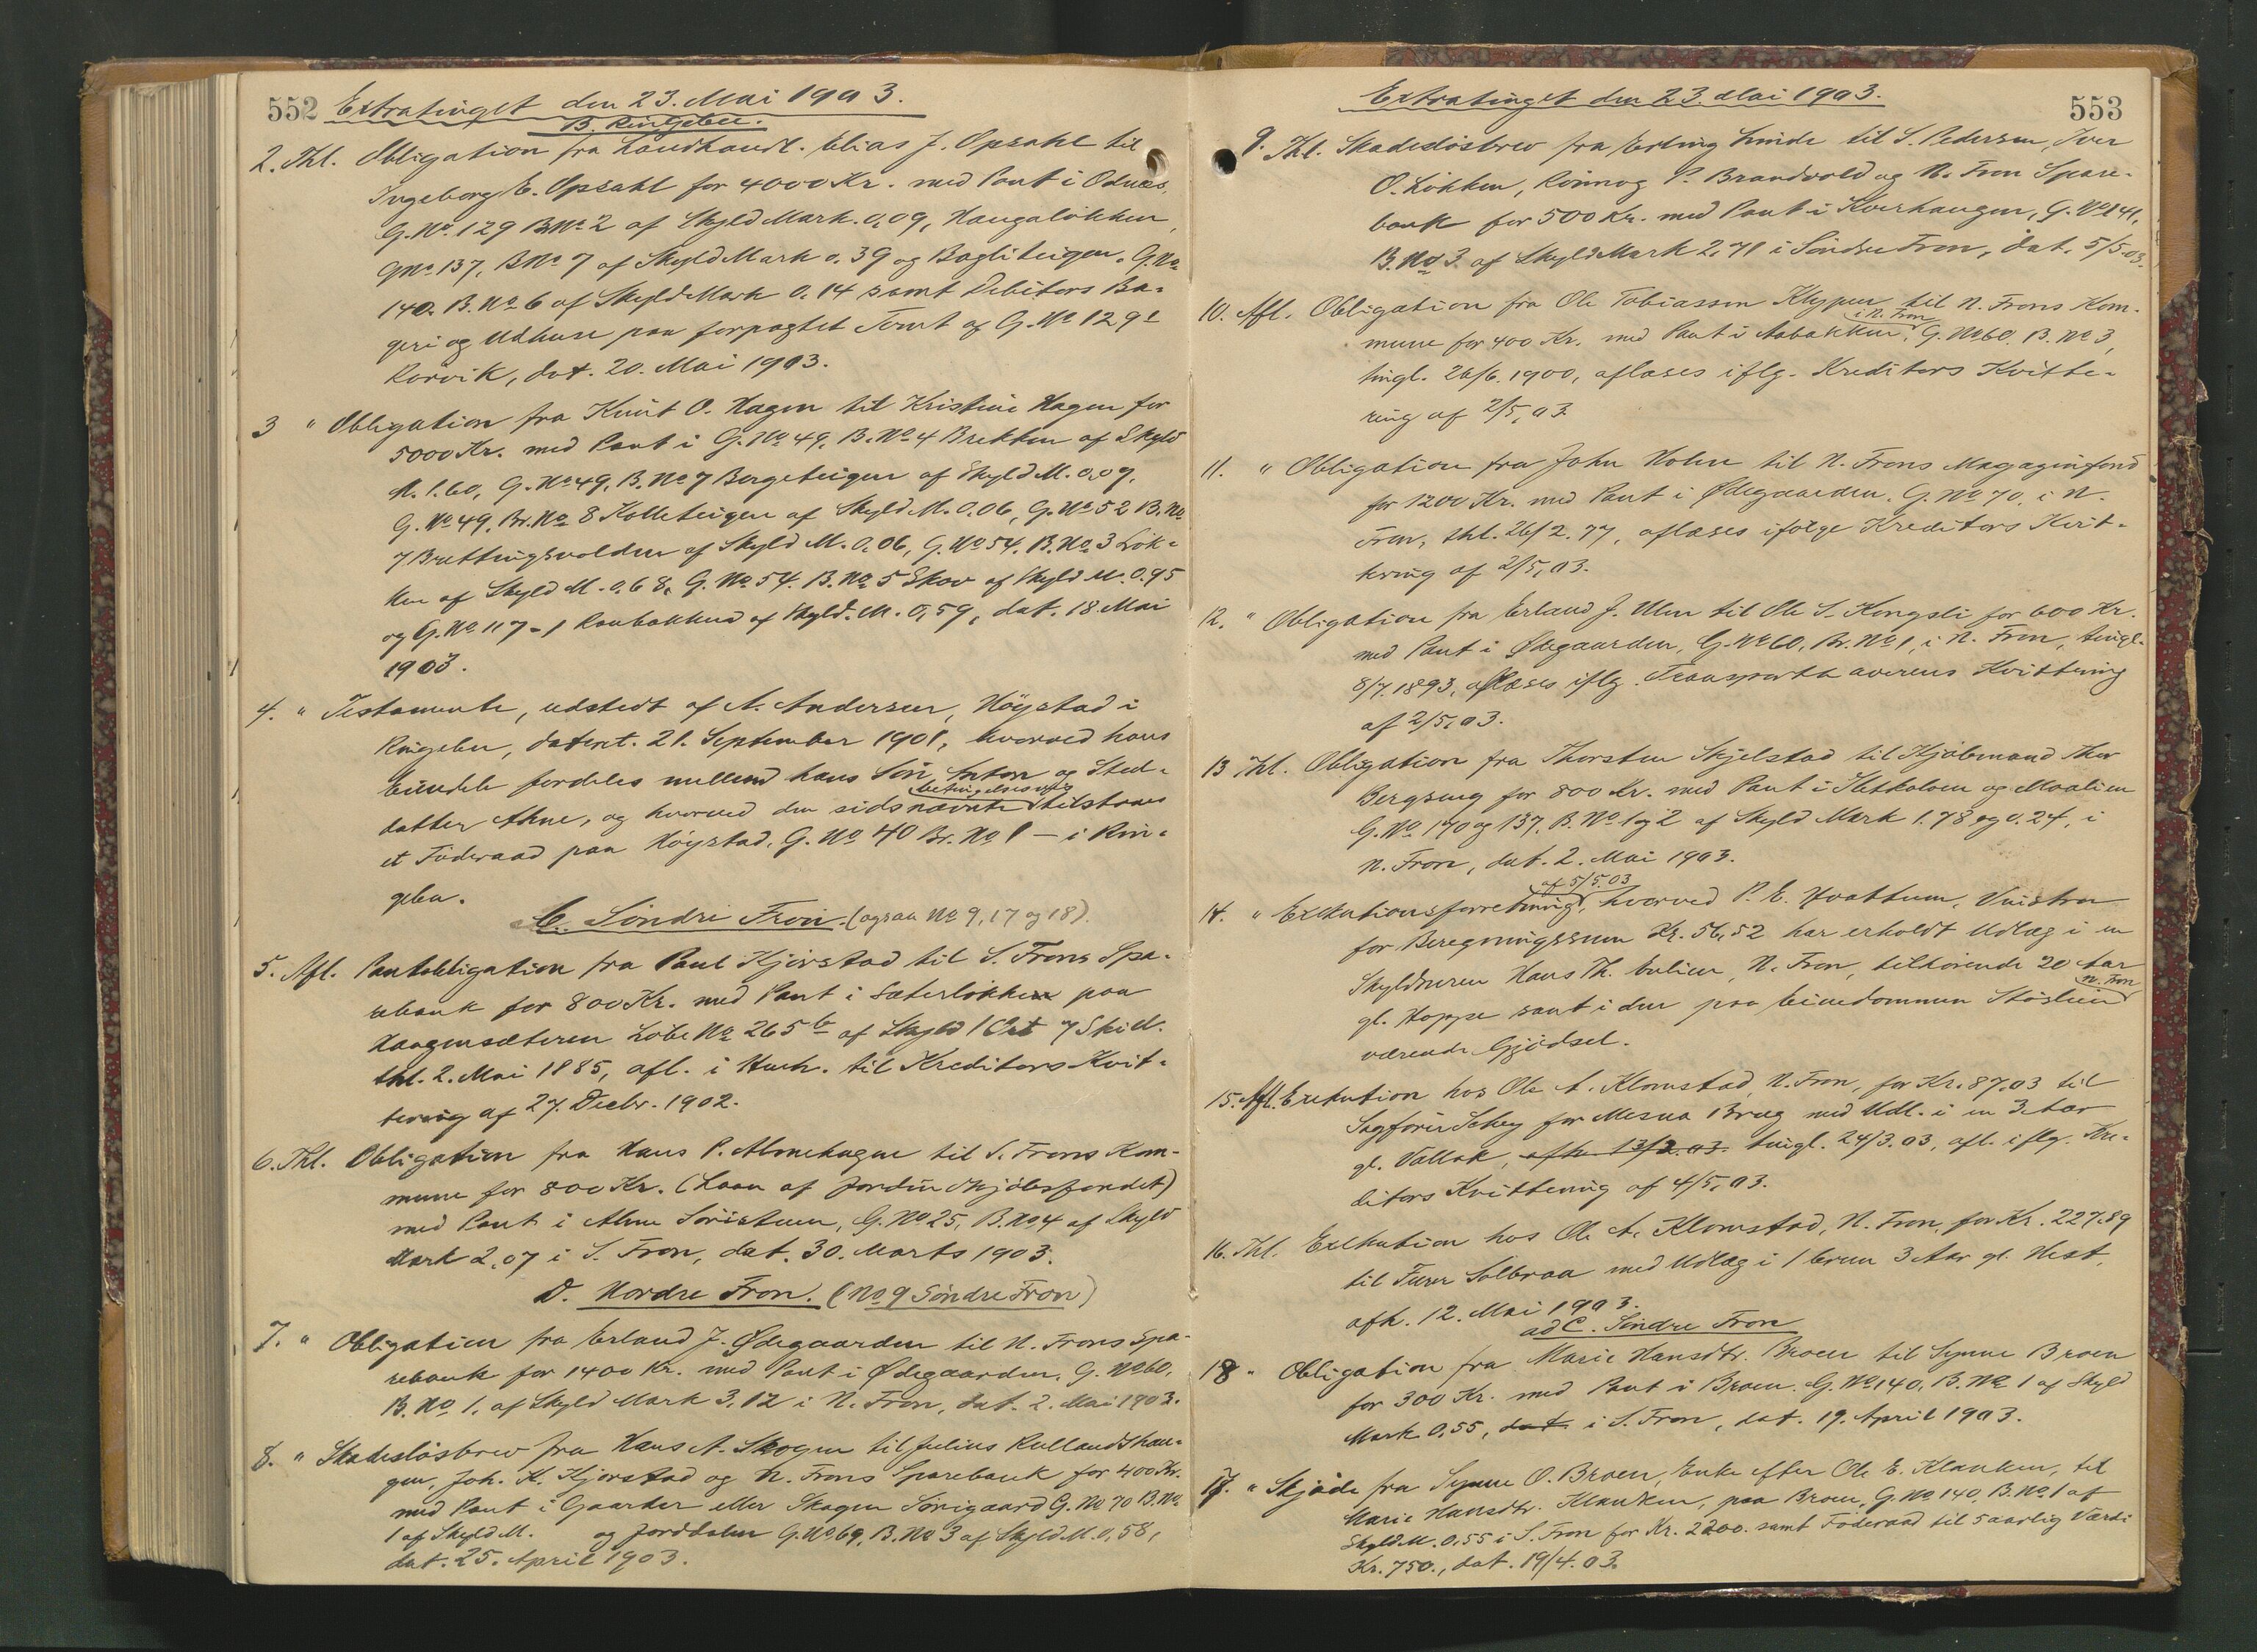 552 Extratinget den 23. Mai 1903.
B. Ringebu.
2. Thl. Obligation fra Landhandl. Elias J. Opsahl til
Ingeborg E. Opsahl for 4000 Kr. med Pant i Odnæs,
G. No. 129 B No 2 af Skyld Mark. 0,09, Haugaløkken,
G No. 137, B No 7 af Skyld Mark 0.39 og Bagliteigen. G. No
140. B. No 6 af Skyld Mark 0.14 samt Debitors Ba-
geri og Udhuse paa forpagtet Tomt af G. No 129 1
Rorvik, dat. 20. Mai 1903.
3 " Obligation fra Knut O. Hagen til Kristine Hagen for
5000 Kr. med Pant i G. No 49, B. No 4 Brekken af Skyld
M. 1.60, G. No 49, B. No 7 Bergeteigen af Skyld M. 0.09,
G. No 49, Br. No 8 Kolleteigen af Skyld M. 0.06, G. No 52 B. No
7 Brattingsvolden af Skyld M. 0.06, G. No 54. B. No 3 Løk-
ken af Skyld M. 0.68, G. No 54. B. No 5 Skov af Skyld M. 0.95
og G. No 117-1 Raubakken af Skyld. M. 0,59, dat. 18. Mai
1903.
4. " Testamente, udstedt af A. Andersen, Høystad i
Ringebu, dateret. 21. September 1901, hvorved hans
Eiendele fordeles mellem hans Søn Anton og Sted-
betingelsesvis
datter Ahne, og hvorved den sidsnævnte tilstaaes
et Føderaad paa Høystad, G. No 40 Br. No 1 — i Rin-
gebu.
C. Søndre Fron. (ogsaa No 9, 17 og 18).
5. Afl. Pantobligation fra Paul Kjørstad til S. Frons Spa-
rebank for 800 Kr. med Pant i Sæterløkken paa
Haagensæteren Løbe No 265 b af Skyld 1 Ort 7 Skill.
thl. 2. Mai 1885, afl. i Henh. til Kreditors Kvit-
tering af 27. Decbr. 1902.
6. Thl. Obligation fra Hans P. Almehagen til S. Frons Kom-
mune for 800 Kr. (Laan af Jordindkjøbsfondet)
med Pant i Alme Søristuen, G. No 25, B. No 4 af Skyld
Mark 2,07 i S. Fron, dat. 30. Marts 1903.
D. Nordre Fron. (No 9 Søndre Fron)
7. " Obligation fra Erland J. Ødegaarden til N. Frons Spa-
rebank for 1400 Kr. med Pant i Ødegaarden, G. No 60,
B. No 1, af Skyld Mark 3,12 i N. Fron, dat. 2. Mai 1903.
8. " Skadesløsbrev fra Hans A. Skogen til Julius Rullandshau-
gen, Joh. K. Kjorstad og N. Frons Sparebank for 400 Kr.
med Pant i Gaarder eller Skogen Sørigaard G. No 70 B. No
1 af Skyld M. og Jorddalen G. No 69, B. No 3 af Skyld M. 0,58,
dat. 25. April 1903.
Extratinget den 23. Mai 1903. 553
9. Thl. Skadesløsbrev fra Erling Linde til S. Pedersen, Iver
O. Løkken, Rønnog P. Brandvold og N. Fron Spare-
bank for 500 Kr. med Pant i Kverhaugen, G. No 141,
B. No 3. af Skyld Mark 2,71 i Søndre Fron, dat. 5/5.03.
10. Afl. Obligation fra Ole Tobiassen Klypen til N. Frons Kom-
i N. Fron
mune for 400 Kr. med Pant i Aabakken, G. No 60. B. No 3,
tingl. 26/6. 1900, aflæses iflg. Kreditors Kvitte-
ring af 2/5, 03.
11. " Obligation fra John Holen til N. Frons Magazinfond
for 1200 Kr. med Pant i Ødegaarden. G. No 70, i N.
Fron, thl. 26/2. 77, aflæses ifølge Kreditors Kvit-
tering af 2/5, 03.
12. " Obligation fra Erland J. Ulen til Ole S. Kongsli for 600 Kr.
med Pant i Ødegaarden, G. No 60, Br. No 1, i N. Fron, tingl.
8/7. 1893, aflæses iflg. Transporthaverens Kvittering
af 2/5, 03.
13 Thl. Obligation fra Thorsten Skjelstad til Kjøbmand Thor
Bergseng for 800 Kr. med Pant i Slethalven og Moalien
G. No 170 og 137, B. No 1 og 2 af Skyld Mark 1.78 og 0.24, i
N. Fron, dat. 2. Mai 1903.
af 5/5.03
14. " Exekutionsforretning, hvorved P. E. Hvattum, Vinstra
for Beregningssum Kr. 56,52 har erholdt Udlæg i en
Skyldneren Hans Th. Eulien, N. Fron, tilhørende 20 Aar
N. Fron
gl. Hoppe samt i den paa Eiendommen Støslien
værende Gjødsel.
15. Afl. Exekution hos Ole A. Klomstad, N. Fron, for Kr. 87,03 til
Sagfører Schey for Mesna Brug med Udl. i en 3 Aar
gl. Vallak, afh. 13/2. 03. tingl. 24/3. 03, afl. iflg. Kre-
ditors Kvittering af 4/5, 03.
16. Thl. Exekution hos Ole A. Klomstad, N. Fron, for Kr. 227,89
til Furer Solbraa med Udlæg i 1 brun 3 Aar gl. Hest,
afh. 12. Mai 1903.
ad C. Søndre Fron
18 " Obligation fra Marie Hansdtr. Broen til Synne Broen
for 300 Kr. med Pant i Broen. G. No 140, B. No 1 af Skyld
Mark 0,55, dat. i S. Fron, dat. 19. April 1903.
17. " Skjøde fra Synne O. Broen, Enke efter Ole E. Klanken, til
Marie Hansdtr. Klanken, paa Broen, G. No. 140, B. No. 1 af
Skyld. M. 0.55 i S. Fron for Kr. 2200. samt Føderaad til 5 aarlig Værdi
Kr. 750., dat. 19/4. 03.